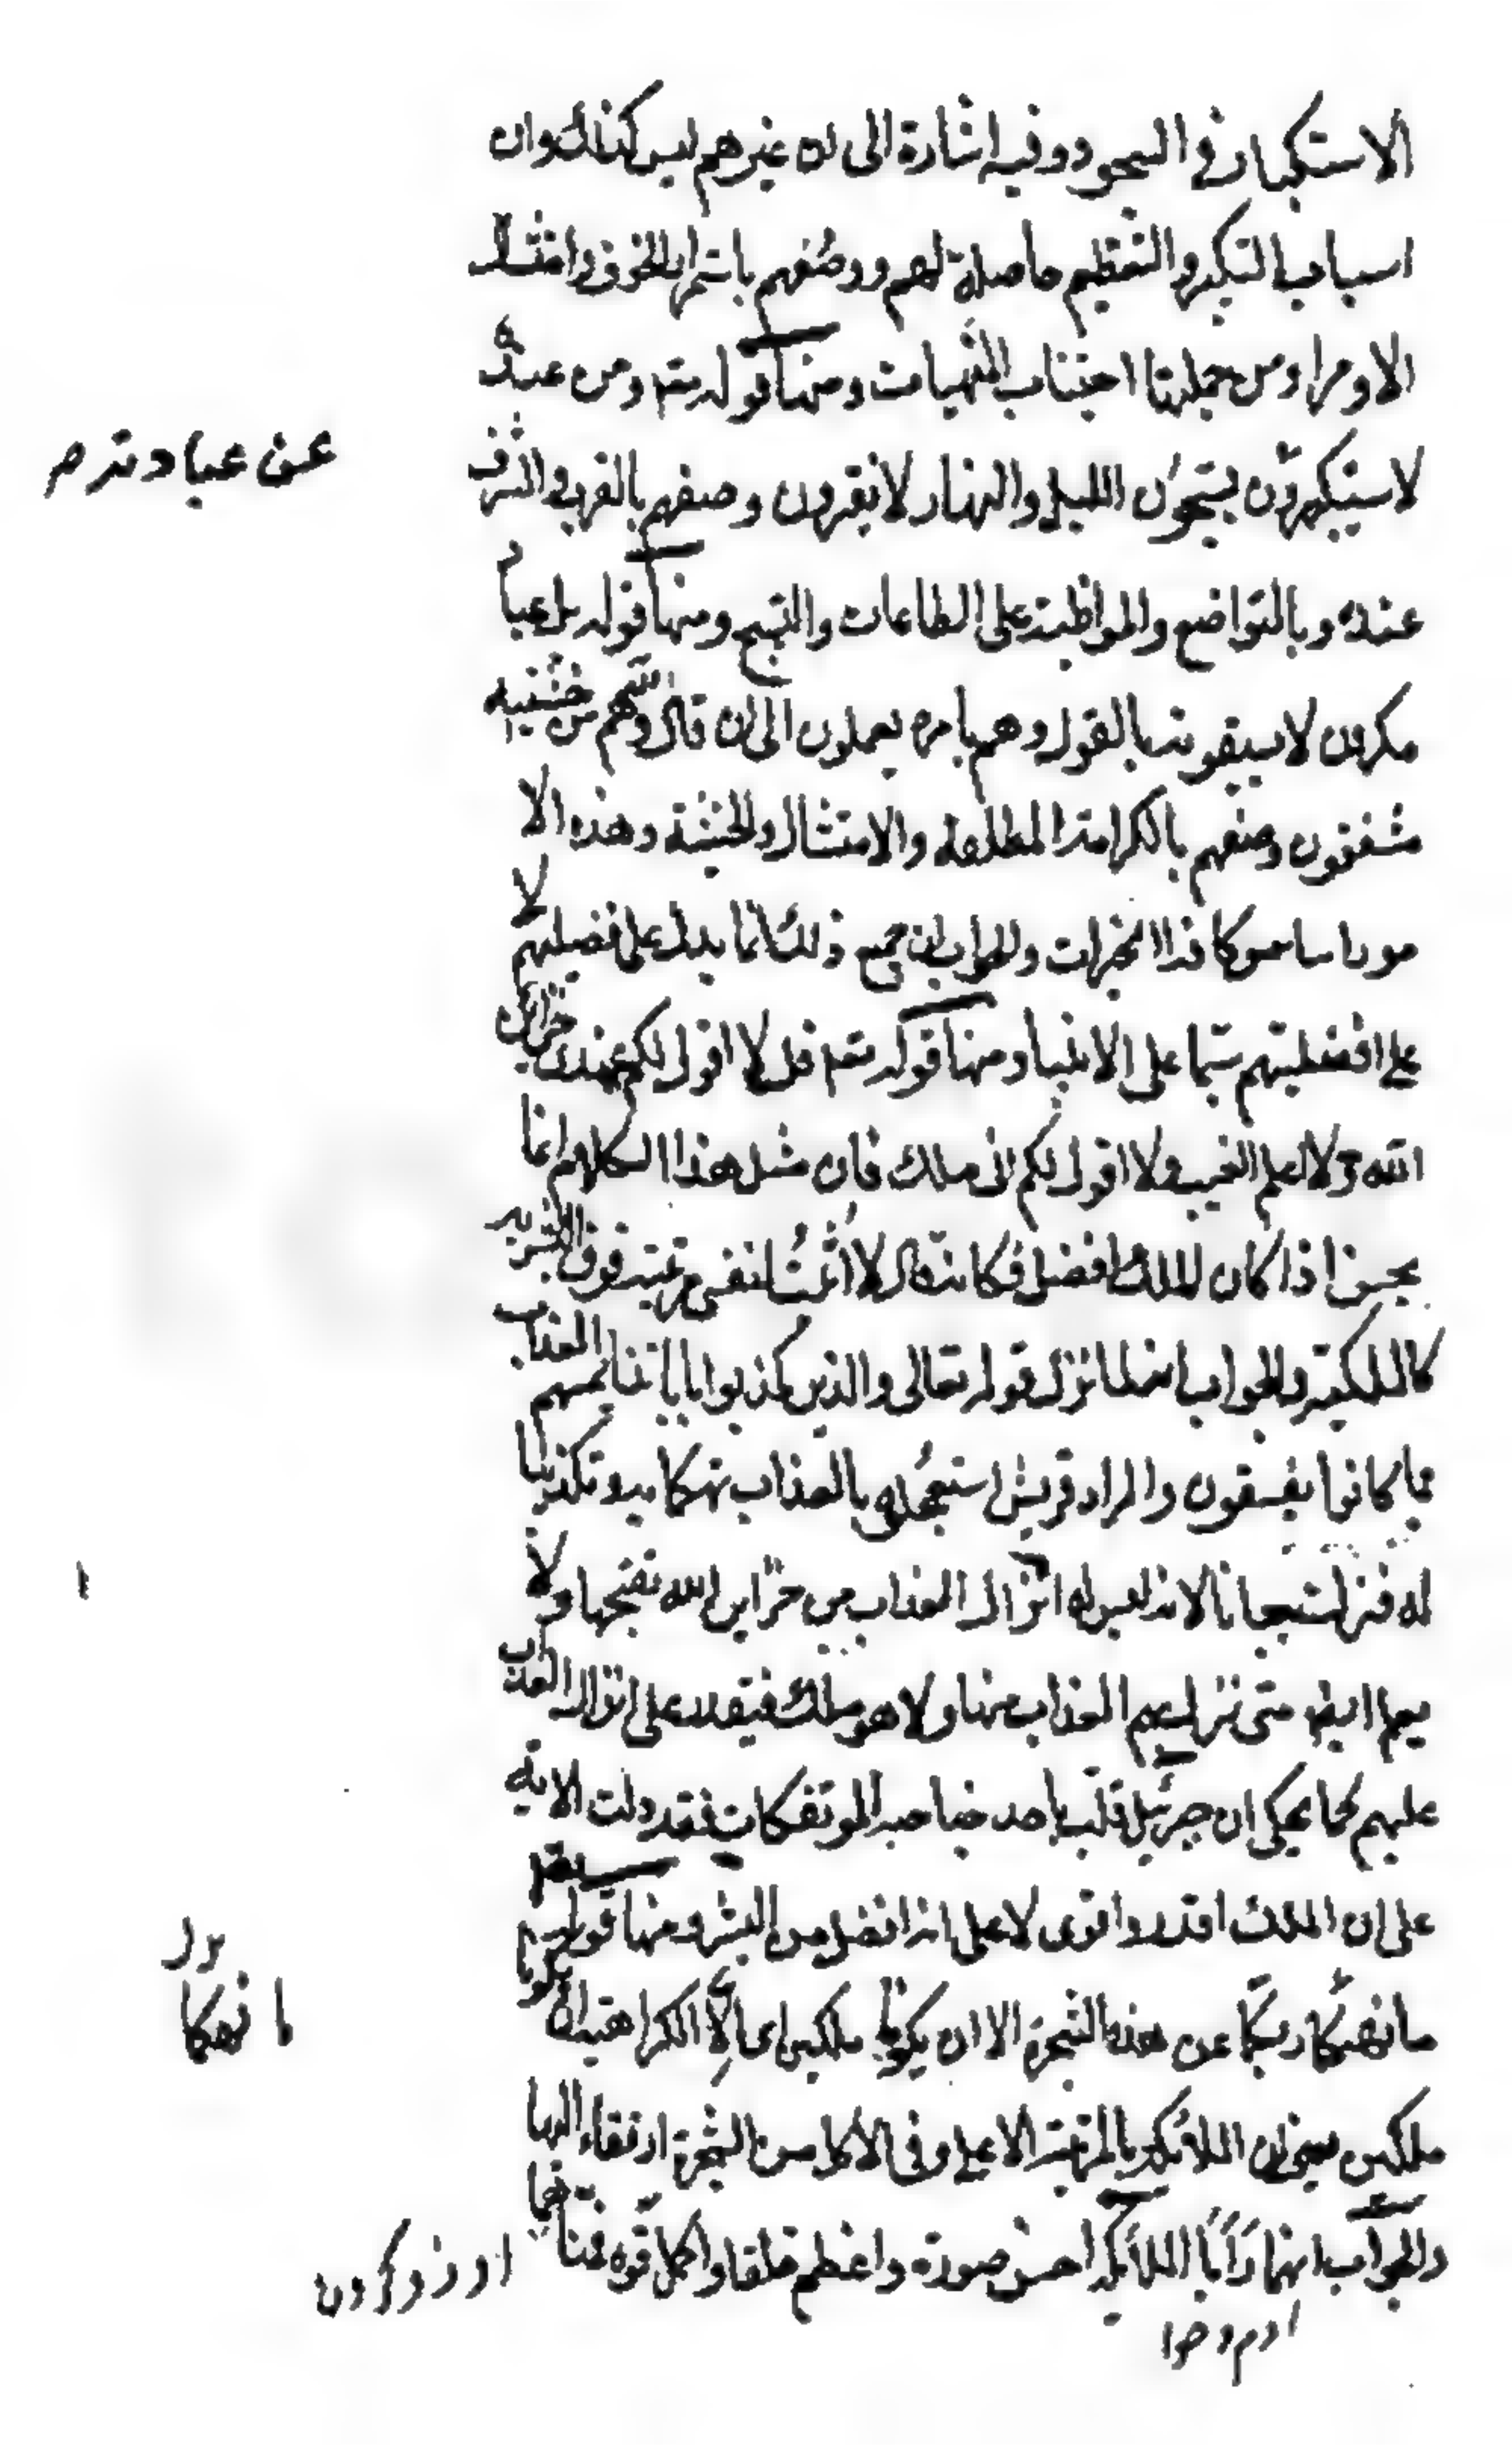 الاستكبار في السجود وفيه اشارة الى ان غيرهم ليس كذلك وان
اسباب التكبر والتعظيم حاصلة لهم ووصفهم باستمرار الخوف وامتثال
الاوامر ومن جملتها اجتناب المنهيات ومنها قوله تعه ومن عنده
لا يستكبرون يسبحون الليل والنهار لا يفترون وصفهم بالقرب والشرف
عن عبادته م
عنده وبالتواضع والمواظبة على الطاعات والتسبيح ومنها قوله بل عباد
مكرمون لا يسبقونه بالقول وهم بامره يعملون الى ان قال وهم من خشيته
مشفقون وصفهم بالكرامة المطلقة والامتثال والخشية وهذه الا
مور اساس كافة الخيرات والجواب ان جميع ذلك انما يدل على فضيلتهم لا
على افضليتهم سيما على الانبيا ومنها قوله تعه قل لا اقول لكم عندى خزائن
الله ولا اعلم الغيب ولا اقول لكم انى ملك فان مثل هذا الكلام انما
يحسن اذا كان الملك افضل فكانه قال لا اثبت لنفسى مرتبة فوق البشرية
كالملكية والجواب انه لما نزل قوله تعالى والذين كذبوا باياتنا يمسهم العذاب
بما كانوا يفسقون والمراد قريش استعجلوه بالعذاب تهكما به وتكذيبا
له فنزلت بيانا لانه ليس له انزال العذاب من خزاين الله يفتحها ولا
يعلم ايضا متى ينزل بهم العذاب منها ولا هو ملك فيقدر على انزال العذاب
عليهم كما يحكى ان جبرئيل قلب باحد جناحيه المؤتفكات فقد دلت الاية
على ان الملك اقدر واقوى لا على انه افضل من البشر ومنها قوله تعه
ما نهيكما ربكما عن هذه الشجرة الا ان تكونا ملكين اى الا لكراهية ان تكونا
ما نهيكما
ملكين يعنى ان الملائكة بالمرتبة الاعلى وفى الاكل من الشجرة ارتقاء اليها
والجواب انهما رأيا الملائكة احسن صورة واعظم خلقا واكمل قوة فتمنيا
ارزو كردن
ادم و حوا